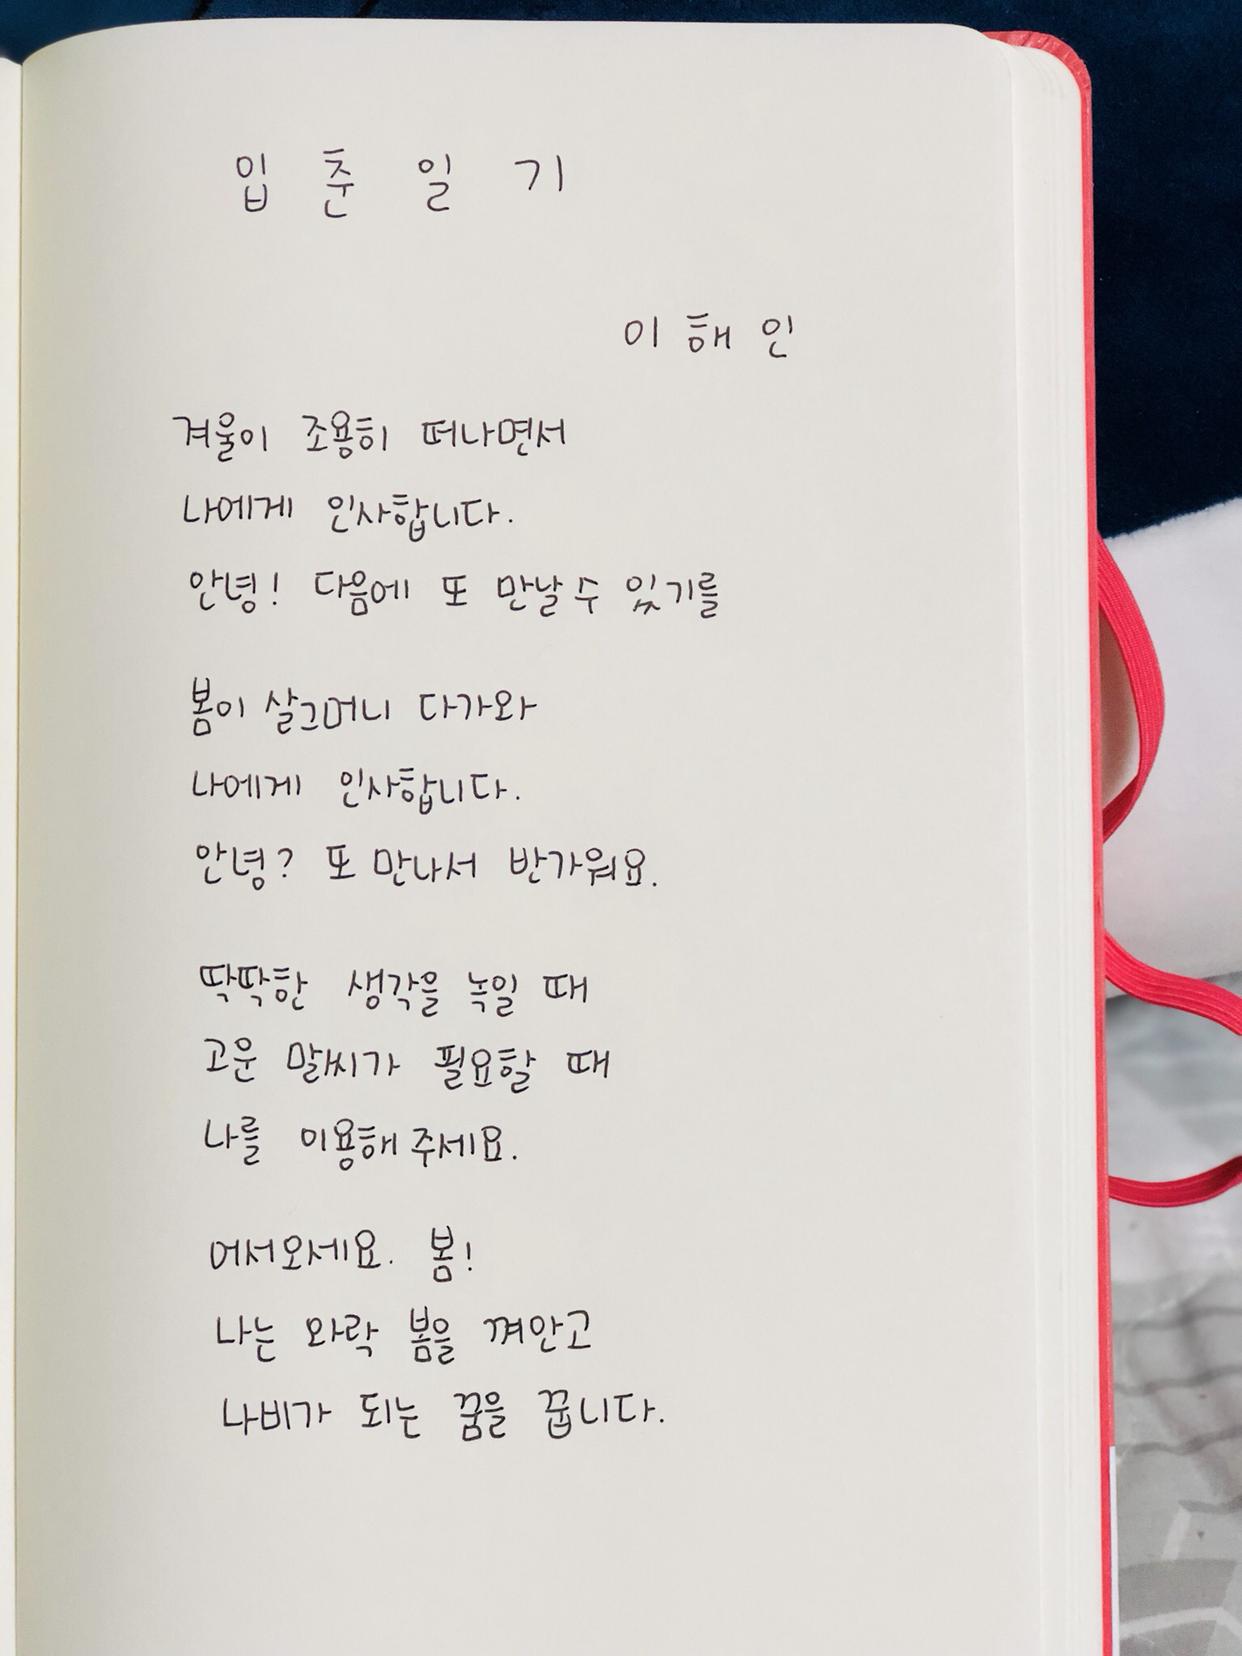 입 춘 일 기
이 해 인
겨울이 조용히 떠나면서
나에게 인사합니다.
안녕! 다음에 또 만날 수 있기를
봄이 살그머니 다가와
나에게 인사합니다.
안녕? 또 만나서 반가워요.
딱딱한 생각을 녹일 때
고운 말씨가 필요할 때
나를 이용해 주세요.
어서오세요. 봄!
나는 와락 봄을 껴안고
나비가 되는 꿈을 꿉니다.